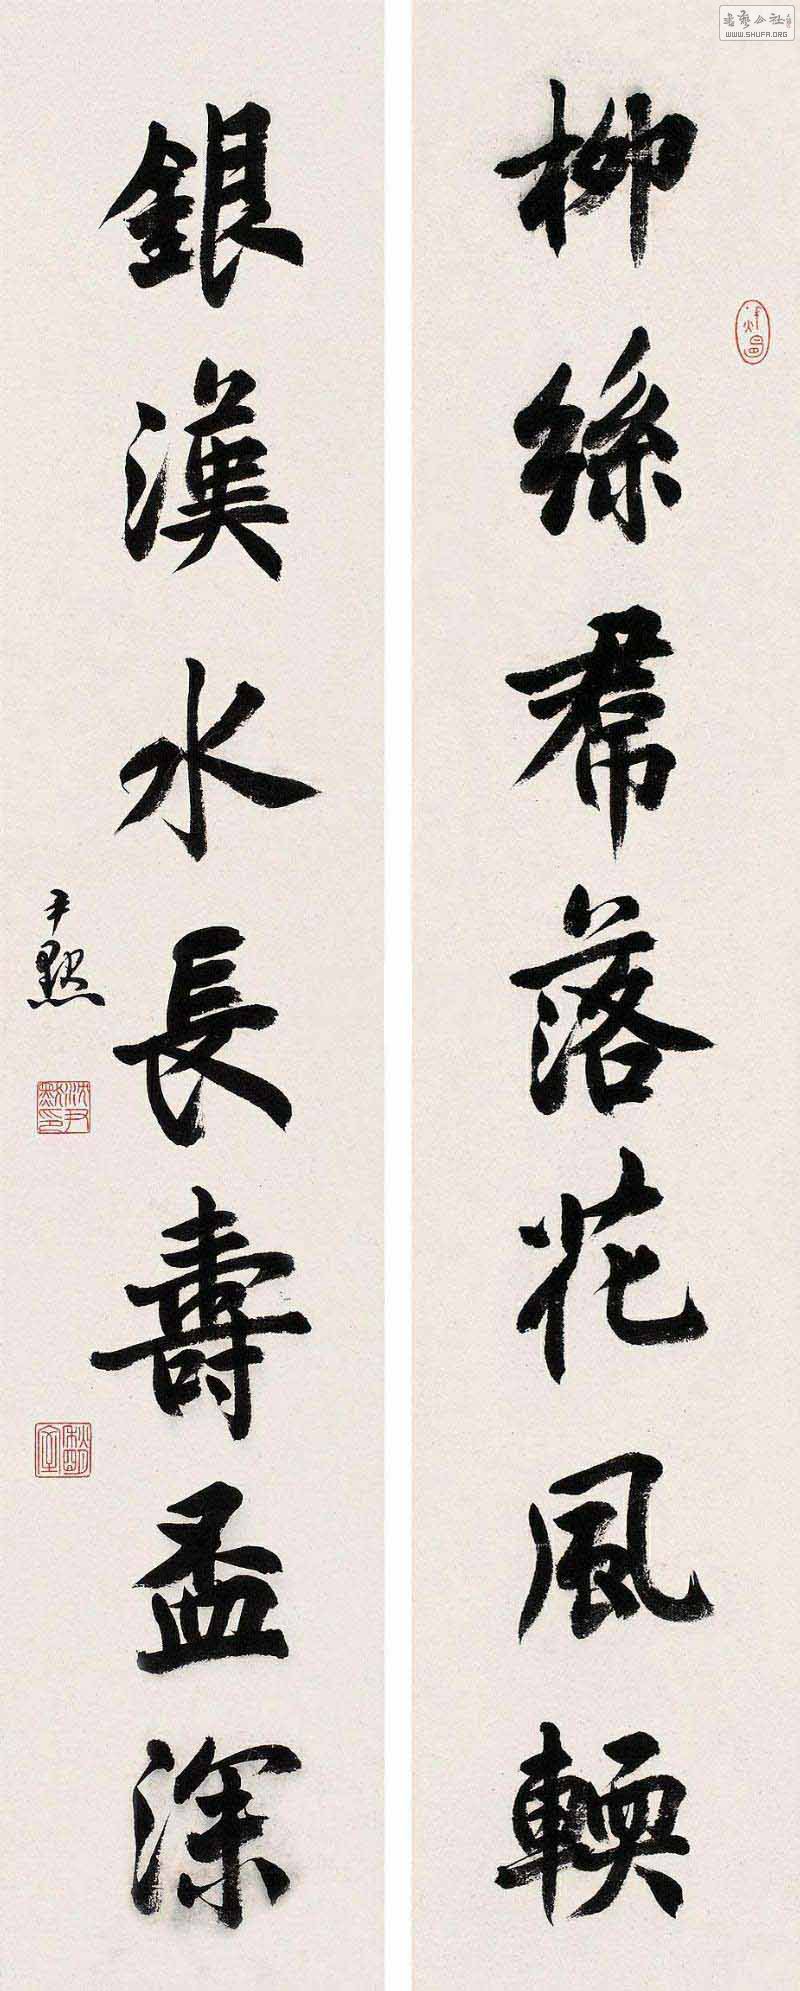 柳絲帬落花風輭
銀漢水長壽盃深
尹默
沈尹默印
書藝公社
WWW.SHUFA.ORG